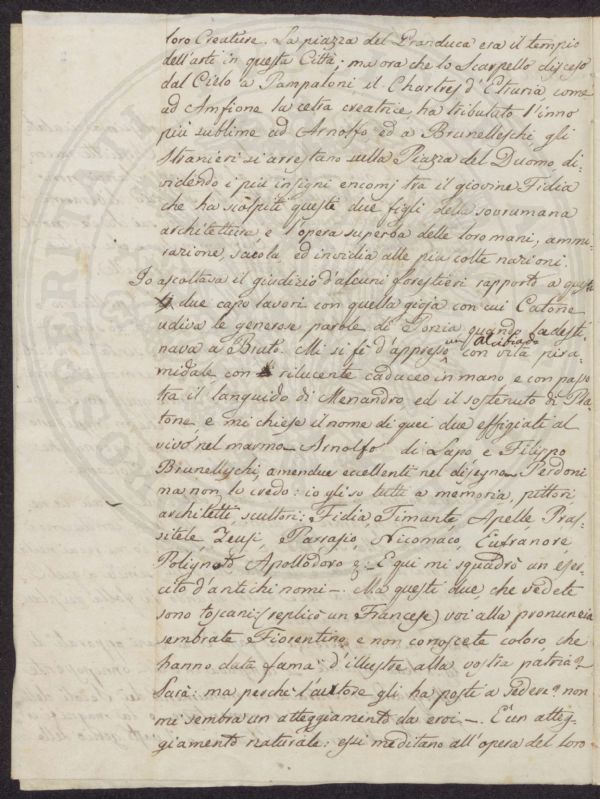 loro Creature. La piazza del Granduca era il tempio
dell'arti in questa Città; ma ora che lo Scarpello disceso
dal Cielo a Pampaloni il Chartres d'Etruria come
ad Amfione la cetra creatrice, ha tributato l'inno
più sublime ad Arnolfo ed a Brunelleschi gli
Stranieri si arrestano sulla Piazza del Duomo, di:
videndo i più insigni encomj tra il giovine Fidia
che ha scolpiti questi due figli della sovrumana
architettura e l'opera superba delle loro mani, ammi:
razione, scuola, ed invidia alle più colte nazioni.
Io ascoltava il giudizio d'alcuni forestieri rapporto a questi
due capo lavori con quella gioja con cui Catone
udiva le generose parole di Porzia quando la desti:
nava a Bruto. Mi si fè d'appresso un Alcibiade con vita pira:
midale con rilucente caduceo in mano, e con passo
tra il languido di Menandro, ed il sostenuto di Pla:
tone e mi chiese il nome di quei due effigiati al
vivo nel marmo – Arnolfo di Lapo e Filippo
Brunelleschi, amendue eccellenti nel disegno – Perdoni
ma non lo credo: io gli so tutti a memoria, pittori
architetti scultori: Fidia Timante, Apelle Pras:
sitele Zeusi, Parrasio, Nicomaco, Eufranore
Polignoto Apollodoro e – E qui mi squadrò un eser:
cito d'antichi nomi –. Ma questi due, che vedete
sono toscani: (replicò un Francese) voi alla pronuncia
sembrate Fiorentino, e non conoscete coloro che
hanno data fama d'illustre alla vostra patria?
Sarà: ma perchè l'autore gli ha posti a sedere? non
mi sembra un atteggiamento da eroi –. È un atteg:
giamento naturale: essi meditano all'opera del loro